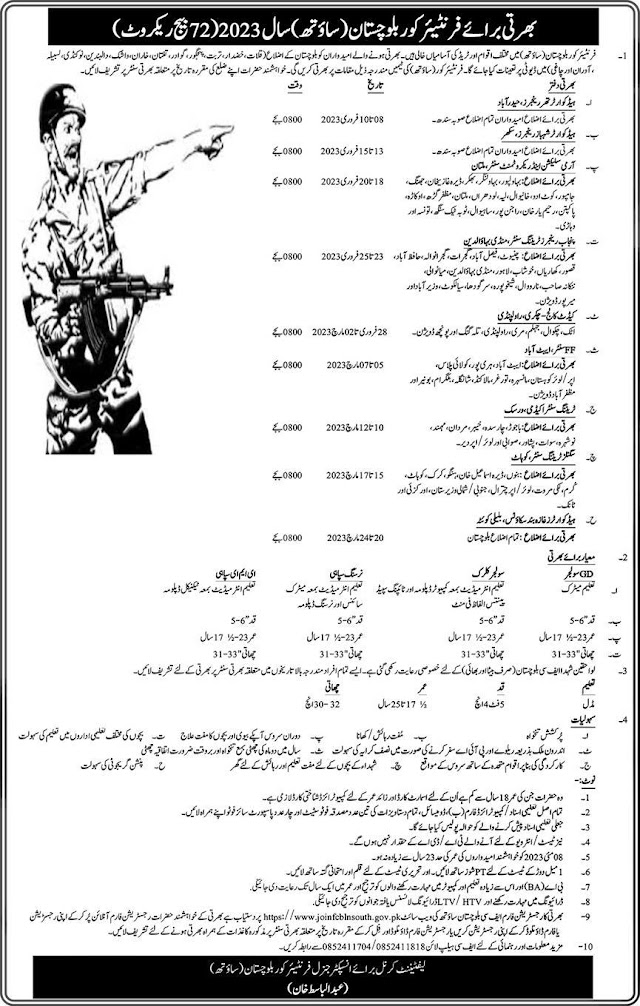 بھرتی برائے فرنٹیئر کور بلوچستان (ساؤتھ) سال 2023 (72 بیچ ریکروٹ)
1- فرنٹیئر کور بلوچستان (ساؤتھ) میں مختلف اقوام اور ٹریڈ کی آسامیاں خالی ہیں۔ بھرتی ہونے والے امیدواران کو بلوچستان کے اضلاع (قلات، خضدار، تربت، پنجگور، گوادر، تفتان، خاران، واشک، دالبندین، نوکنڈی، لسبیلہ
، آواران اور چاغی) میں ڈیوٹی پر تعینات کیا جائے گا۔ فرنٹیئر کور (ساؤتھ) کی ٹیمیں مندرجہ ذیل مقامات پر بھرتی کریں گی۔ خواہشمند حضرات اپنے ضلع کی مقررہ تاریخ پر متعلقہ بھرتی سنٹر پر تشریف لائیں۔
بھرتی دفتر تاریخ وقت
ا۔ ہیڈ کوارٹر تھر رینجرز، حیدر آباد
بھرتی برائے اضلاع امیدواران تمام اضلاع صوبہ سندھ۔ 08 تا 10 فروری 2023 0800 بجے
ب۔ ہیڈ کوارٹر شہباز رینجرز، سکھر
بھرتی برائے اضلاع امیدواران تمام اضلاع صوبہ سندھ۔ 13 تا 15 فروری 2023 0800 بجے
پ۔ آرمی سلیکشن اینڈ ریکروٹمنٹ سنٹر، ملتان
بھرتی برائے اضلاع: بہاولپور، بہاولنگر، بھکر، ڈیرہ غازیخان، جھنگ، 18 تا 20 فروری 2023 0800 بجے
جامپور، کوٹ ادو، خانیوال، لیہ، لودھراں، ملتان، مظفر گڑھ، اوکاڑہ،
پاکپتن، رحیم یار خان، راجن پور، ساہیوال، ٹوبہ ٹیک سنگھ، تونسہ اور
وہاڑی۔
ت۔ پنجاب رینجرز ٹریننگ سنٹر، منڈی بہاؤالدین
بھرتی برائے اضلاع: چنیوٹ، فیصل آباد، گجرات، گجرانوالہ، حافظ آباد، 23 تا 25 فروری 2023 0800 بجے
قصور، کھاریاں، خوشاب، لاہور، منڈی بہاؤالدین، میانوالی،
ننکانہ صاحب، نارووال، شیخوپورہ، سرگودھا، سیالکوٹ، وزیر آباد اور
میر پور ڈویژن۔
ٹ۔ کیڈٹ کالج - چکری، راولپنڈی
اٹک، چکوال، جہلم، مری، راولپنڈی، تلہ گنگ اور پونچھ ڈویژن۔ 28 فروری تا 02 مارچ 2023 0800 بجے
ث۔ FF سنٹر، ایبٹ آباد
بھرتی برائے اضلاع: ایبٹ آباد، ہری پور، کولائی پلاس، 05 تا 07 مارچ 2023 0800 بجے
اپر / لوئر کوہستان، مانسہرہ، تورغر، مالاکنڈ، شانگلہ، بٹگرام، بونیر اور
مظفر آباد ڈویژن۔
ج۔ ٹریننگ سنٹر اکیڈمی، ورسک
بھرتی برائے اضلاع: باجوڑ، چارسدہ، خیبر، مردان، مہمند، 10 تا 12 مارچ 2023 0800 بجے
نوشہرہ، سوات، پشاور، صوابی اور لوئر / اپر دیر۔
چ۔ سگنلز ٹریننگ سنٹر، کوہاٹ
بھرتی برائے اضلاع: بنوں، ڈیرہ اسماعیل خان، ہنگو، کرک، کوہاٹ، 15 تا 17 مارچ 2023 0800 بجے
کرم، لکی مروت، لوئر / اپر چترال، جنوبی / شمالی وزیرستان، اورکزئی اور
ٹانک۔
ح۔ ہیڈ کوارٹرز غازہ بند سکاؤٹس، بلیلی کوئٹہ
بھرتی برائے اضلاع: تمام اضلاع بلوچستان 20 تا 24 مارچ 2023 0800 بجے
2- معیار برائے بھرتی
GD سولجر سولجر کلرک نرسنگ سپاہی ای ایم ای سپاہی
ا۔ تعلیم میٹرک تعلیم انٹرمیڈیٹ بمعہ کمپیوٹر ڈپلومہ اور ٹائپنگ سپیڈ تعلیم انٹرمیڈیٹ بمعہ میٹرک تعلیم انٹرمیڈیٹ بمعہ ٹیکنیکل ڈپلومہ
پینتس الفاظ فی منٹ سائنس اور نرسنگ ڈپلومہ
ب۔ قد 6"-5 قد 6"-5 قد 6"-5 قد 6"-5
پ۔ عمر 23-½ 17 سال عمر 23-½ 17 سال عمر 23-½ 17 سال عمر 23-½ 17 سال
ت۔ چھاتی "33-31 چھاتی "33-31 چھاتی "33-31 چھاتی "33-31
3- لواحقین شہدا ایف سی بلوچستان (صرف بیٹا اور بھائی) کے لئے خصوصی رعایت رکھی گئی ہے۔ ایسے تمام افراد مندرجہ بالا تاریخوں میں متعلقہ بھرتی سنٹر پر بھرتی کے لئے تشریف لائیں۔
تعلیم قد عمر چھاتی
مڈل 5 فٹ 4 انچ ½ 17 تا 25 سال 32-30 انچ
4- سہولیات
ا۔ پرکشش تنخواہ ب۔ مفت رہائش / کھانا پ۔ دوران سروس آپکے بیوی اور بچوں کا مفت علاج ت۔ بچوں کی مختلف تعلیمی اداروں میں تعلیم کی سہولت
ٹ۔ اندرون ملک بذریعہ ریلوے اور پی آئی اے سفر کرنے کی صورت میں نصف کرایہ کی سہولت ث۔ سال میں دو ماہ کی چھٹی بمع تنخواہ اور بروقت ضرورت اتفاقیہ چھٹی
ج۔ کارکردگی کی بنا پر اقوام متحدہ کے ساتھ سروس کے مواقع چ۔ شہداء کے بچوں کے لئے مفت تعلیم اور رہائش کے لئے گھر ح۔ پنشن گریجوئٹی کی سہولت
نوٹ:-
1- وہ حضرات جن کی عمر 18 سال سے کم ہے اُن کے لئے اسمارٹ کارڈ اور زائد عمر کے لئے کمپیوٹرائزڈ شناختی کارڈ لازمی ہے۔
2- تمام اصل تعلیمی اسناد / کمپیوٹرائزڈ فارم (ب)، ڈومیسائل، تمام دستاویزات کی تین عدد مصدقہ فوٹو سٹیٹ اور چار عدد پاسپورٹ سائز فوٹو اپنے ہمراہ لائیں۔
3- جعلی تعلیمی اسناد پیش کرنے والے کو حوالہ پولیس کیا جائے گا۔
4- نیز ٹیسٹ / انٹرویو کے لئے آنے والے ٹی اے / ڈی اے کے حقدار نہیں ہوں گے۔
5- 08 مئی 2023 کو خواہشمند امیدواروں کی عمر کی حد 23 سال سے زیادہ نہ ہو۔
6- 1 میل دوڑ کے ٹیسٹ کے لئے PT شوز ساتھ لائیں۔ اور تحریری ٹیسٹ کے لئے قلم اور امتحانی گتہ ساتھ لائیں۔
7- بی اے (BA) اور اس سے زیادہ تعلیم اور کمپیوٹر میں مہارت رکھنے والوں کو ترجیح اور عمر میں ایک سال تک رعایت دی جائیگی۔
8- ڈرائیونگ میں مہارت رکھنے اور LTV/HTV ڈرائیونگ لائسنس یافتہ جوانوں کو ترجیح دی جائیگی۔
9- بھرتی کا رجسٹریشن فارم ایف سی بلوچستان ساؤتھ کی ویب سائٹ https://www.joinfcblnsouth.gov.pk پر دستیاب ہے بھرتی کے خواہشمند حضرات رجسٹریشن فارم آنلائن پر کر کے اپنی رجسٹریشن
یا فارم ڈاؤنلوڈ کر کے اپنی رجسٹریشن کریں یا رجسٹریشن فارم ڈاؤنلوڈ اور فل کر کے مقررہ تاریخ پر متعلقہ بھرتی سنٹر پر مذکورہ کاغذات کے ہمراہ بھرتی ہونے کے لئے تشریف لائیں۔
10- مزید معلومات اور رہنمائی کے لئے ایف سی ہیلپ لائن 0852411818 / 0852411704 سے رابطہ کریں۔
لیفٹیننٹ کرنل برائے انسپکٹر جنرل فرنٹیئر کور بلوچستان (ساؤتھ)
(عبدالباسط خان)